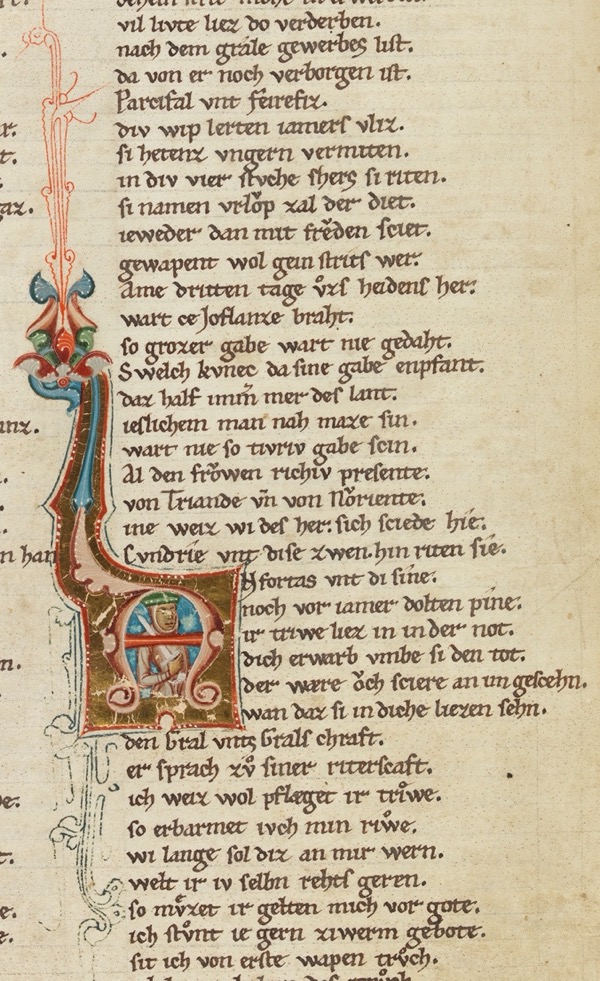 vil livte liez do verderben.
nach dem grale gewerbes list.
da von er noch verborgen ist.
Parcifal vnt feirefiz.
div wip lerten iamers vliz.
si hetenz vngern vermiten.
in div vier stvche shers si riten.
si namen vrlǒp zal der diet.
ieweder dan mit frēden sciet.
gewapent wol gein strits wer.
Ame dritten tage v̊zs heidens her.
wart ce Joflanze braht.
so grozer gabe wart nie gedaht.
Swelch kvnec da sine gabe enpfant.
daz half imm̄ mer des lant.
ieslichem man nah maze sin.
wart nie so tivriv gabe scin.
Al den frǒwen richiv presente.
von Triande vn̄ von Nǒriente.
ine weiz wi des her sich sciede hie.
Cvndrie vnt dise zwen. hin riten sie.
Anfortas vnt di sine.
noch vor iamer dolten pine.
ir triwe liez in in der not.
dich erwarb vmbe si den tot.
der wære ǒch sciere an im gescehn.
wan daz si in diche liezen sehn.
den Gral vnts Grals chraft.
er sprach zv̊ siner riterscaft.
ich weiz wol pflæget ir triwe.
so erbarmet ivch min riwe.
wi lange sol diz an mir wern.
welt ir iv selbn rehts geren.
so mv̊zet ir gelten mich vor gote.
ich stv̊nt ie gern ziwerm gebote.
sit ich von erste wapen trv̊ch.